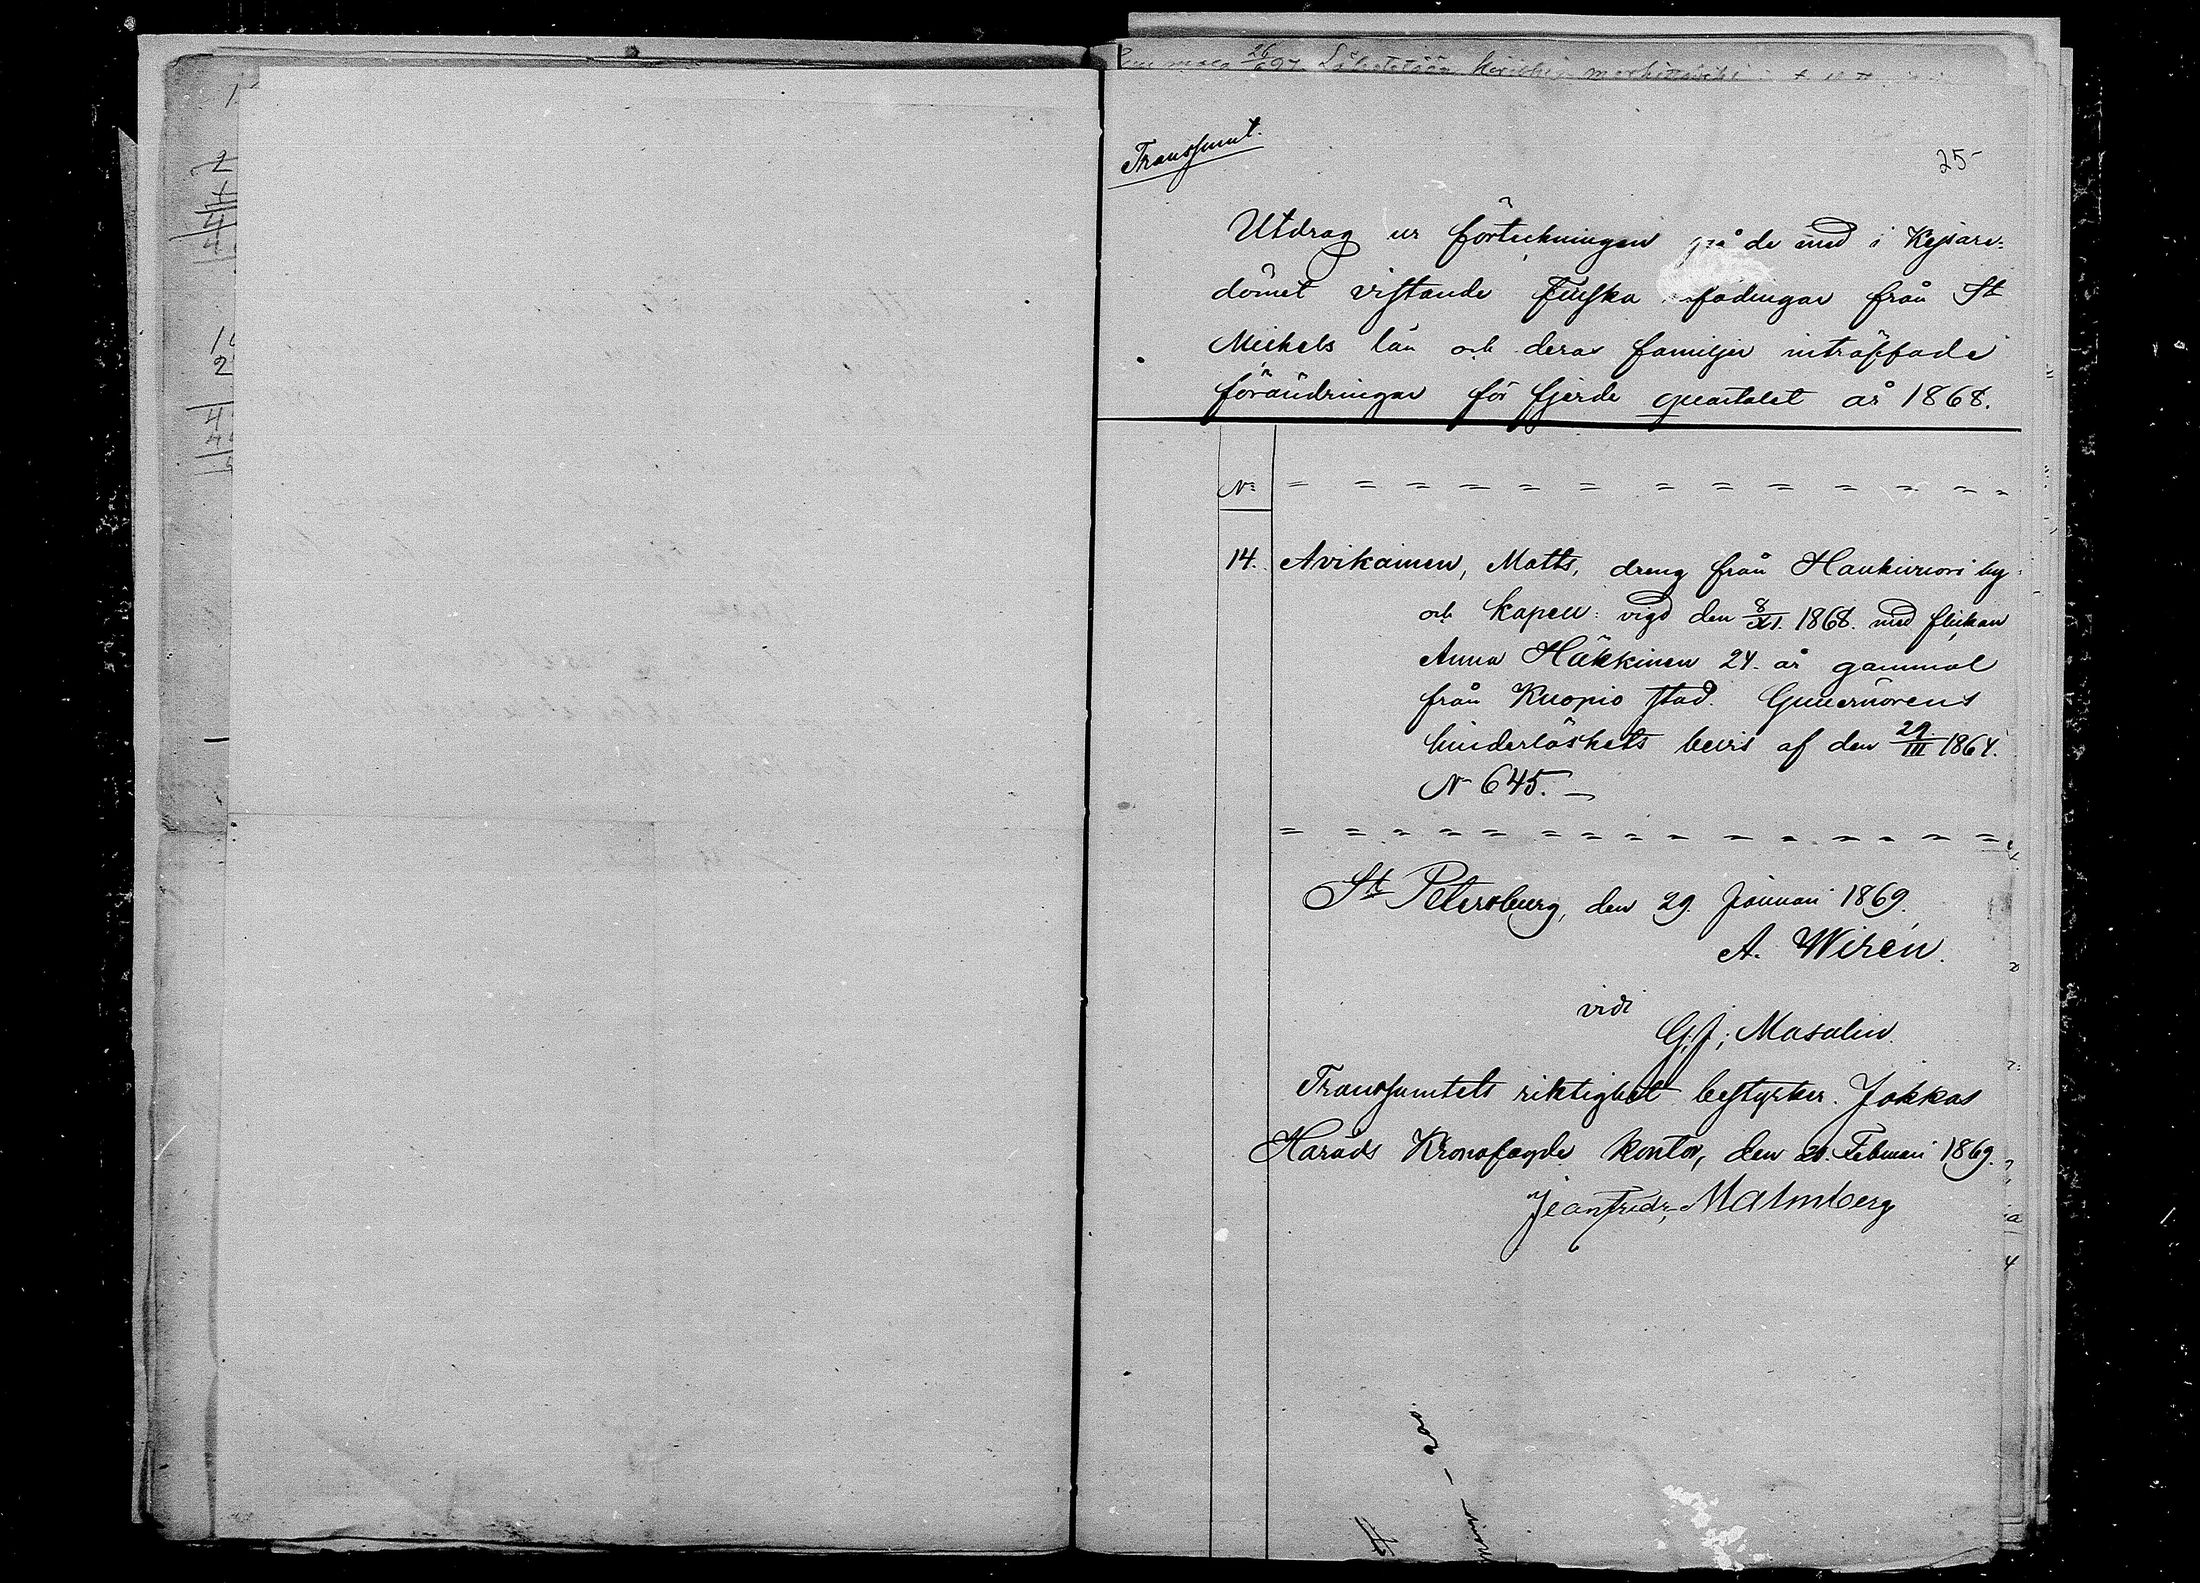 Transsumt.
25
Utdrag ur förteckningen på de med i Kejsare-
dömet vistande Finska infödingar från St
Mickels län och deras familjer inträffade
förändringar för fjerde quartalet år 1868.
No = = = = = = = = = = = = =
14. Avikainen, Matts, dreng från Haukivuori by
och kapell: vigd den 8/XI. 1868. med flickan
Anna Häkkinen 24. år gammal
från Kuopio stad. Guvernörens
hinderlöshets bevis af den 29/III 1864.
No 645. —
= = = = = = = = = = = = = = =
St Petersburg, den 29. Januari 1869.
A. Wirén.
vidi
G; J; Masalin.
Transsumtets riktighet bestyrker. Jokkas
Härads Kronofogde kontor, den 20. Februari 1869.
Jean Fredr. Malmberg